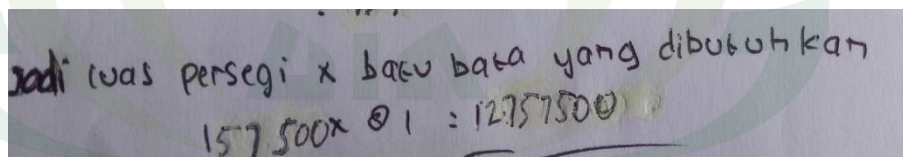 Jadi luas persegi x batu bata yang dibutuhkan
157 500 x 81 = 12.757500